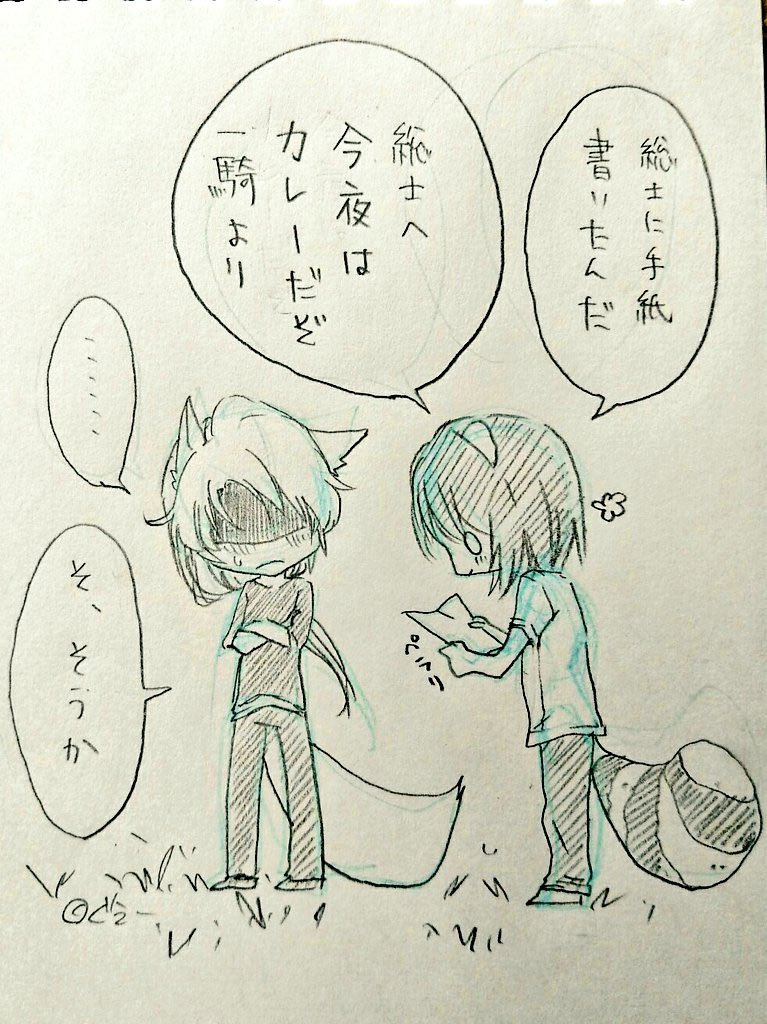 総士に手紙
書いたんだ
総士へ
今夜は
カレーだぞ
一騎より
………
そ、そうか